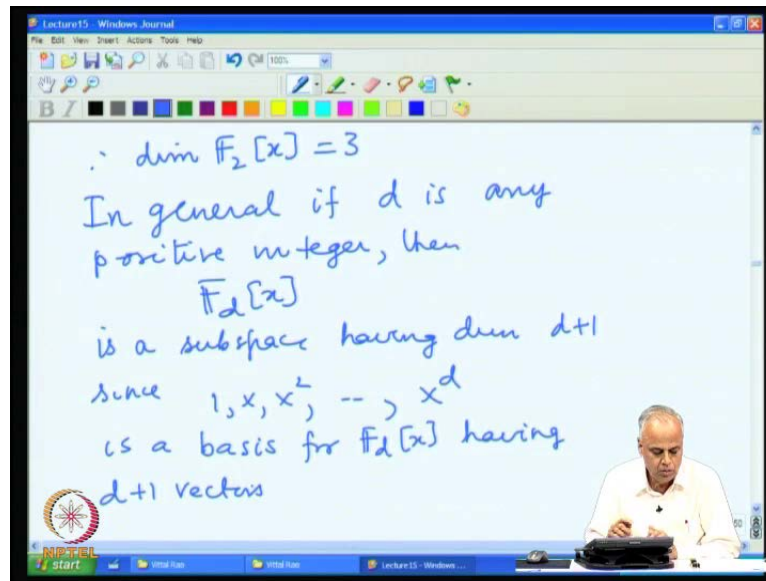 Lecture15 - Windows Journal
File Edit View Insert Actions Tools Help
100%
B I
∴ dim 𝔽₂[x] = 3
In general if d is any
positive integer, then
𝔽_d[x]
is a subspace having dim d+1
since 1, x, x², --, x^d
is a basis for 𝔽_d[x] having
d+1 vectors
NPTEL
start Vittal Rao Vittal Rao Lecture15 - Windows ...